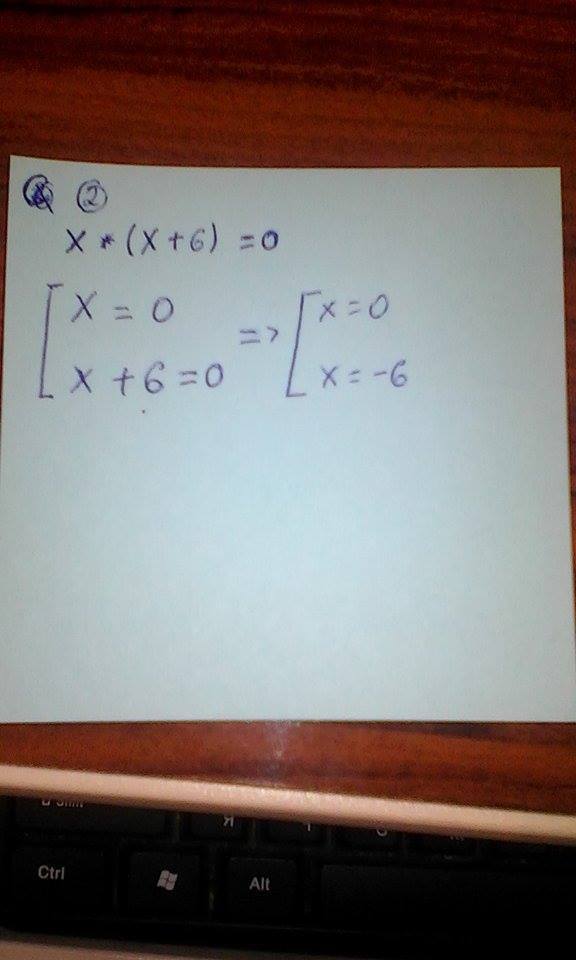 ②
x * (x + 6) = 0
[ x = 0
x + 6 = 0
=> [ x = 0
x = -6
Я
Ctrl
Alt